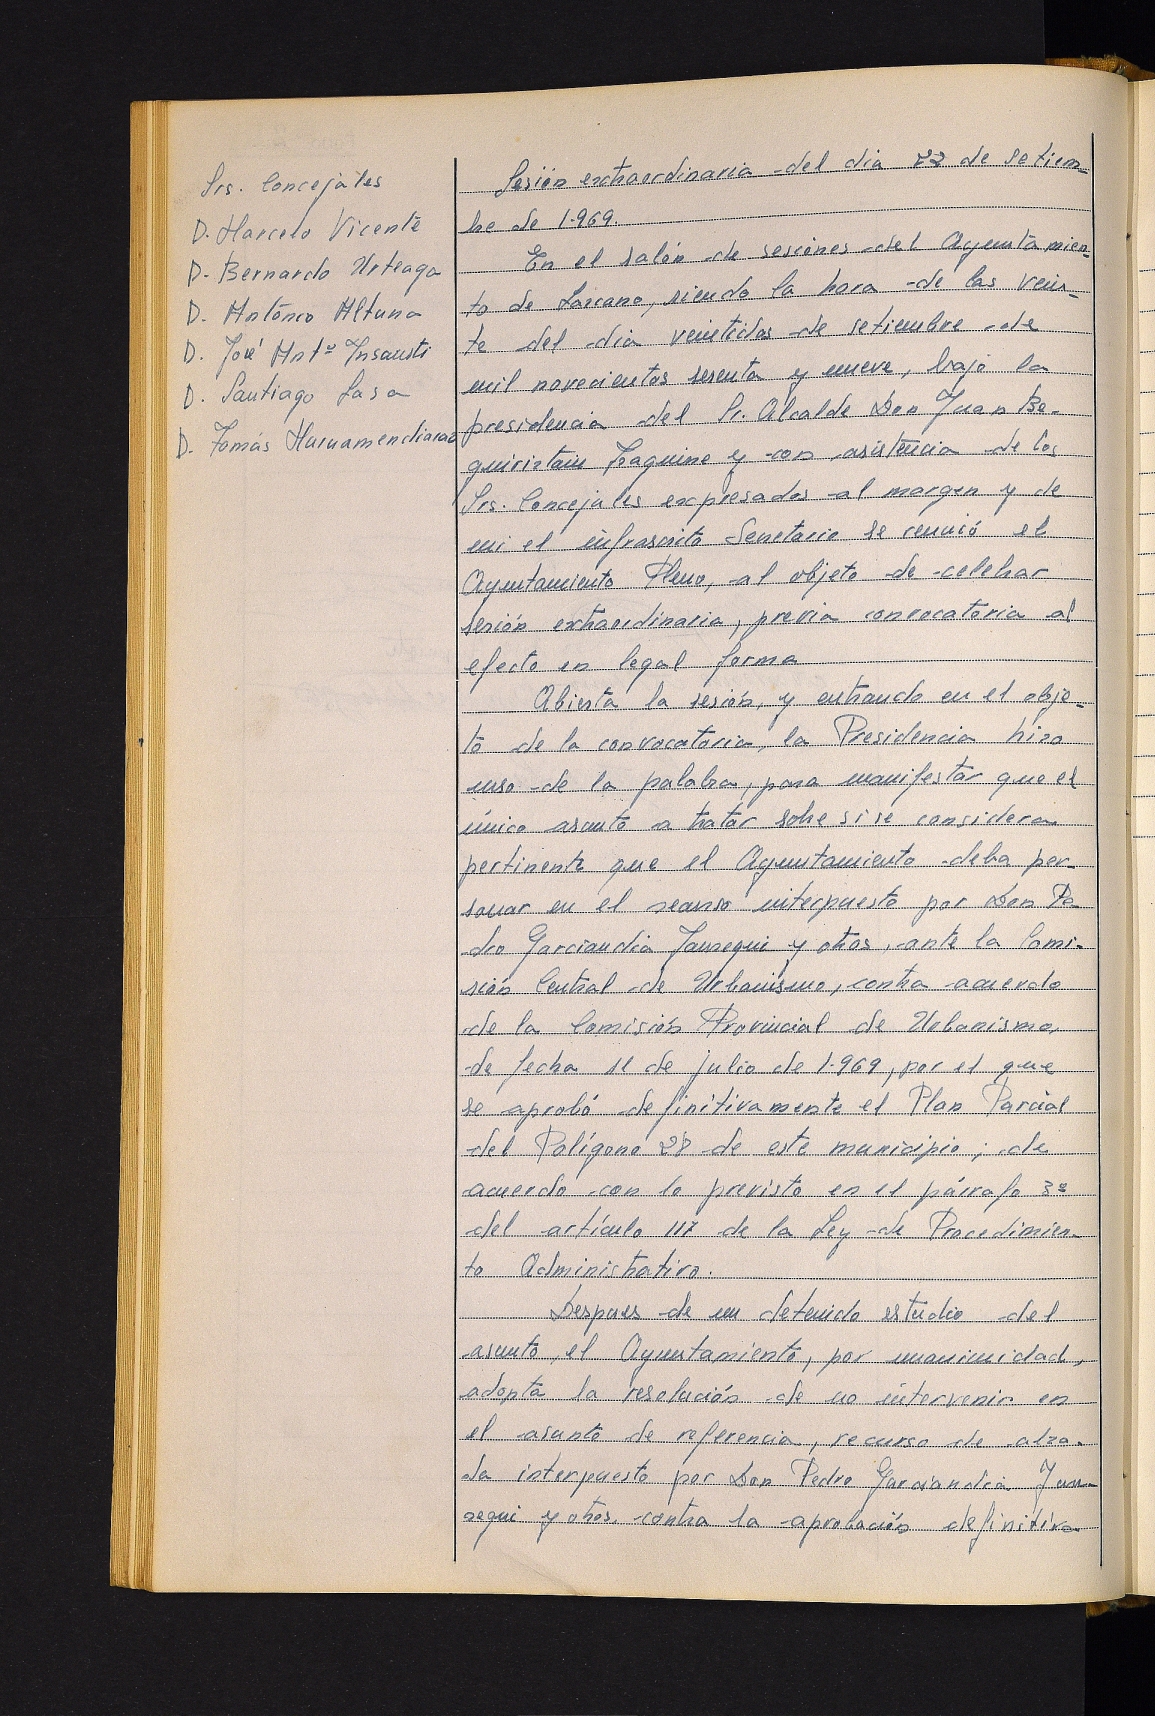 Srs. Concejales
D. Marcelo Vicente
D. Bernardo Urteaga
D. Antonio Altuna
D. José Antº Insausti
D. Santiago Lasa
D. Tomás Aurramendiaraz
Sesión extraordinaria del dia 22 de setiem-
bre de 1.969.
En el salón de sesiones del Ayuntamien-
to de Lazcano, siendo la hora de las vein-
te del dia veintidos de setiembre de
mil novecientos sesenta y nueve, bajo la
presidencia del Sr. Alcalde Don Juan Be-
guiristain y con asistencia de los
Srs. Concejales expresados al margen y de
mi el infrascrito Secretario se reunió el
Ayuntamiento Pleno, al objeto de celebrar
sesión extraordinaria, previa convocatoria al
efecto en legal forma
Abierta la sesión, y entrando en el obje-
to de la convocatoria, la Presidencia hizo
uso de la palabra, para manifestar que el
único asunto a tratar sobre si se considera
pertinente que el Ayuntamiento deba per-
sonar en el recurso interpuesto por Don Pe-
dro Garciandia Jauregui y otros, ante la Comi-
sión Central de Urbanismo, contra acuerdo
de la Comisión Provincial de Urbanismo,
de fecha 11 de julio de 1.969, por el que
se aprobó definitivamente el Plan Parcial
del Polígono 28 de este municipio; de
acuerdo con lo previsto en el párrafo 3º
del artículo 117 de la Ley de Procedimien-
to Administrativo.
Despues de un detenido estudio del
asunto, el Ayuntamiento, por unanimidad,
adopta la resolución de no intervenir en
el asunto de referencia, recurso de alza-
da interpuesto por Don Pedro Garciandia Jau-
regui y otros, contra la aprobación definitiva